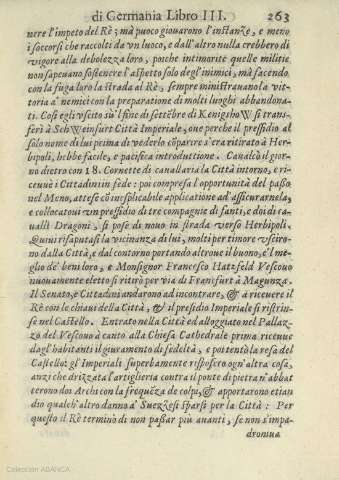 di Germania Libro III. 263
nere l'impeto del Rè; mà puoco giouarono l'instanze, e meno
i soccorsi che raccolti da vn luoco, e dall'altro nulla crebbero di
vigore alla debolezza loro, poiche intimorite quelle militie
non sapeuano sostenere l'aspetto solo degl'inimici, mà facendo
con la fuga loro la strada al Rè, sempre ministrauano la vit-
toria a' nemici con la preparatione di molti luoghi abbandona-
ti. Cosi egli vscito sù'l fine di Settēbre di KenigshoW si trans-
ferì à SchWeinfurt Città Imperiale, one perche il presidio al
solo nome di lui prima di vederlo cōparire s'era ritirato à Her-
bipoli, hebbe facile, e pacifica introduttione. Canalcò il gior-
no dietro con 18. Cornette di canallaria la Città intorno, e ri-
ceuuè i Cittadini in fede: poi compresa l'opportunità del passo
nel Meno, attese cō inesplicabile applicatione ad'assicurarnela,
e collocatoui vn presidio di tre compagnie di fanti, e doi di ca-
ualli Dragoni, si pose di nouo in strada verso Herbipoli.
Quiui risaputasi la vicinanza di lui, molti per timore vsciro-
no dalla Città, e dal contorno portando altroue il buono, e'l me-
glio de' beni loro, e Monsignor Francesco Hatzfeld Vescouo
nouamente eletto si ritirò per via di Fransfurt à Magunza.
Il Senato, e Cittadini andarono ad incontrare, & à riceuere il
Rè con le chiaui della Città, & il presidio Imperiale si ristrin-
se nel Castello. Entrato nella Città ed alloggiato nel Pallaz-
zo del Vescouo à canto alla Chiesa Cathedrale prima riceuue
dagl'habitanti il giuramento di fedeltà, e poi tentò la resa del
Castello: gl'Imperiali superbamente risposero ogn'altra cosa,
anzi che drizzata l'artiglieria contra il ponte di pietra n'abbat-
terono dos Archi con la frequēza de colpi, & apportarono etian
dio qualch'altro danno a' Suezzesi sparsi per la Città: Per
questo il Rè terminò di non passar più auanti, se non s'impa-
droniua
Colección ABANCA